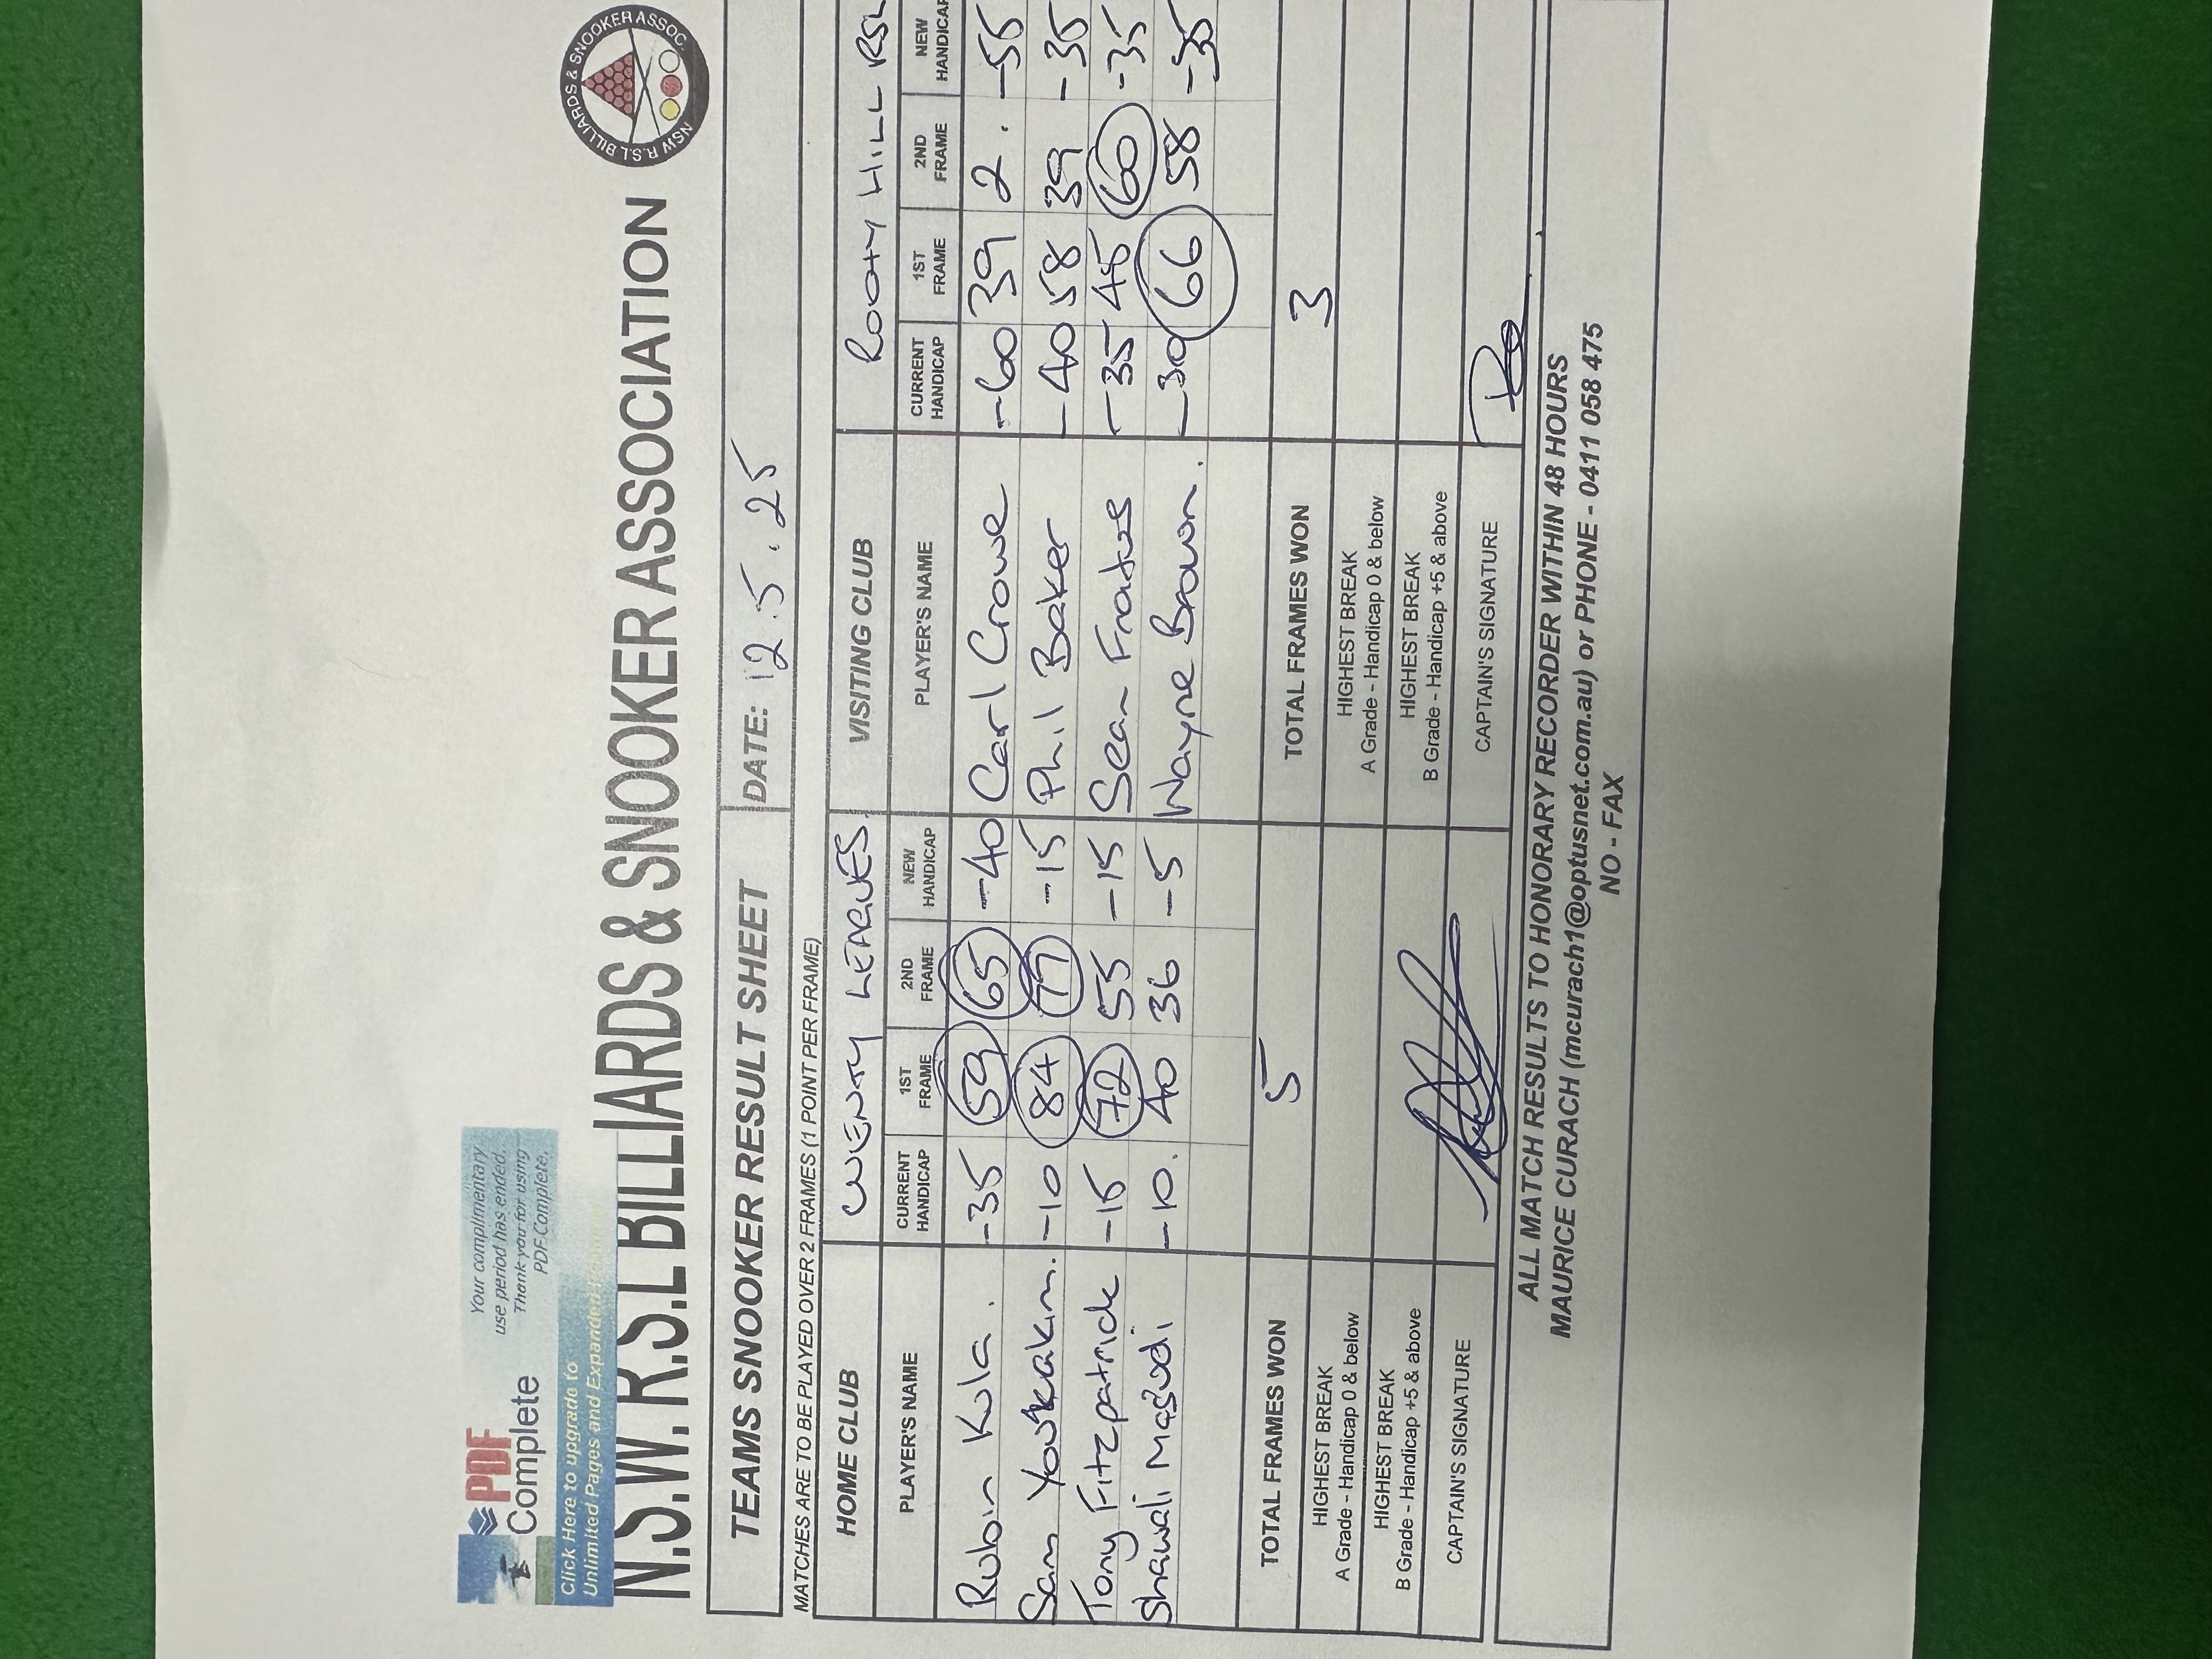 PDF Complete
Your complimentary use period has ended. Thank you for using PDF Complete.
Click Here to upgrade to
Unlimited Pages and Expanded
NSW R.S.L BILLIARDS & SNOOKER ASSOC.
N.S.W. R.S.L BILLIARDS & SNOOKER ASSOCIATION
TEAMS SNOOKER RESULT SHEET DATE: 12.5.25
MATCHES ARE TO BE PLAYED OVER 2 FRAMES (1 POINT PER FRAME)
HOME CLUB WENTY LEAGUES VISITING CLUB ROOTY HILL RSL
PLAYER'S NAME CURRENT HANDICAP 1ST FRAME 2ND FRAME NEW HANDICAP PLAYER'S NAME CURRENT HANDICAP 1ST FRAME 2ND FRAME NEW HANDICAP
Rubin Kula. -35 59 65 -40 Carl Crowe -60 39 2. -55
Sam Youkakim. -10 84 77 -15 Phil Baker -40 58 39 -35
Tony Fitzpatrick -15 72 55 -15 Sean -35 45 60 -35
Shawali Masudi -10. 40 36 -5 Wayne Brown. -30 66 58 -35
TOTAL FRAMES WON 5 TOTAL FRAMES WON 3
HIGHEST BREAK HIGHEST BREAK
A Grade - Handicap 0 & below A Grade - Handicap 0 & below
HIGHEST BREAK HIGHEST BREAK
B Grade - Handicap +5 & above B Grade - Handicap +5 & above
CAPTAIN'S SIGNATURE CAPTAIN'S SIGNATURE
ALL MATCH RESULTS TO HONORARY RECORDER WITHIN 48 HOURS
MAURICE CURACH (mcurach1@optusnet.com.au) or PHONE - 0411 058 475
NO - FAX